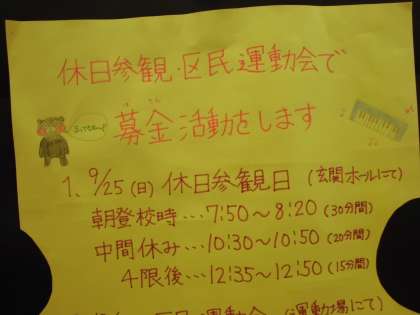 休日参観・区民運動会で
募金活動をします
1、9/25(日) 休日参観日 (玄関ホールにて)
朝登校時…7:50～8:20(30分間)
中間休み…10:30～10:50(20分間)
4限後…12:35～12:50(15分間)
区民運動会 (運動場にて)